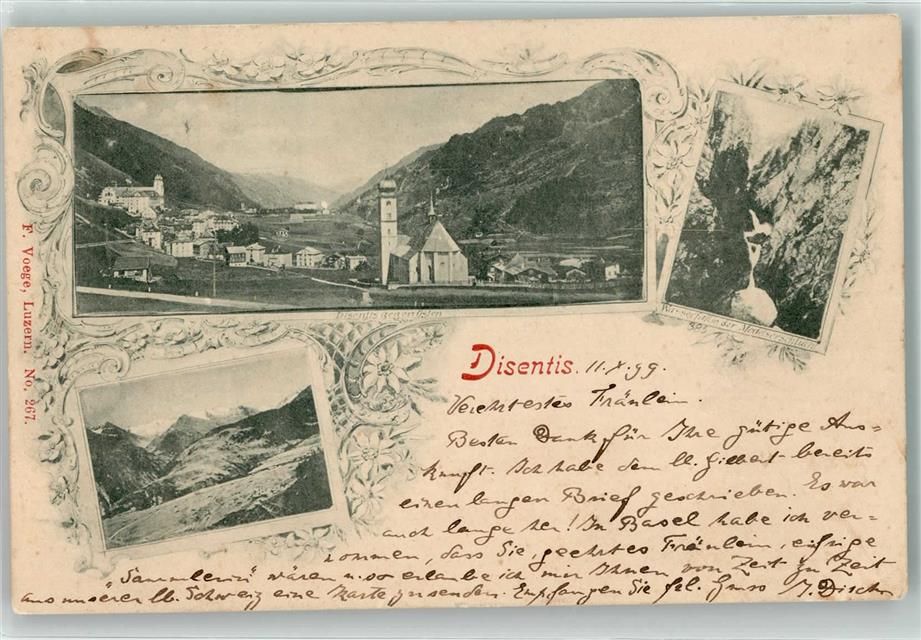 F. Voege, Luzern. No. 267.
Disentis gegen Osten
Wasserfall in der Medelserschlucht
Disentis. 11.X.99.
Verehrtestes Fräulein.
Besten Dank für Ihre gütige Aus-
kunft. Ich habe dem ll. Gilbert bereits
einen langen Brief geschrieben. Es war
auch lange her! In Basel habe ich ver-
nommen, dass Sie, geehrtes Fräulein, eifrige
"Sammlerin" wären u. so erlaube ich mir Ihnen von Zeit zu Zeit
aus unserer lb. Schweiz eine Karte zu senden. Empfangen Sie frl. Gruss